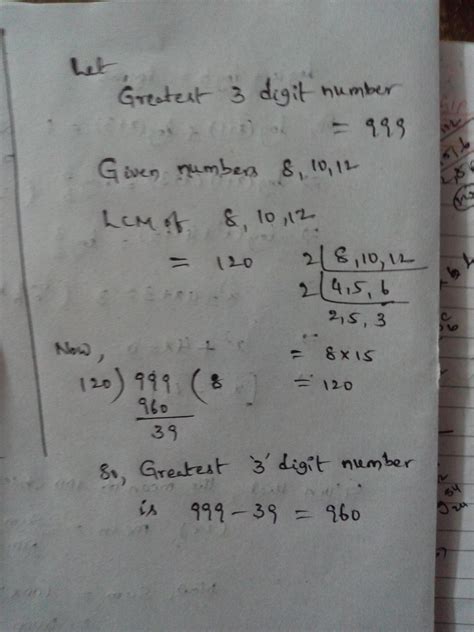 Let
Greatest 3 digit number
= 999
Given numbers 8, 10, 12
LCM of 8, 10, 12
= 120
2 | 8, 10, 12
2 | 4, 5, 6
2, 5, 3
= 8 × 15
= 120
Now,
120 ) 999 ( 8
960
39
So, Greatest '3' digit number
is 999 - 39 = 960